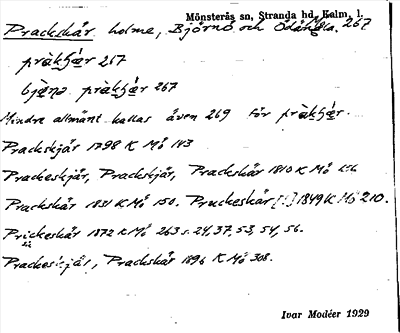 Mönsterås sn, Stranda hd, Kalm. l.
Prackskär holme, Björnö och Ödängla. 267
pràkʃæ̀r 267
bjø̀nø pràkʃæ̀r 267
Mindre allmänt kallas även 269 för pràkʃæ̀r.
Prackskjär 1798 K Mö 143
Prackeskjär, Prackskjär, Prackskär 1810 K Mö
Prackskär 1831 K Mö 150. Prackeskär [:] 1849 K Mö 210.
Prickeskär 1872 K Mö 263 s. 24, 37, 53, 54, 56.
Prackeskjär, Prackskär 1896 K Mö 308.
Ivar Modéer 1929